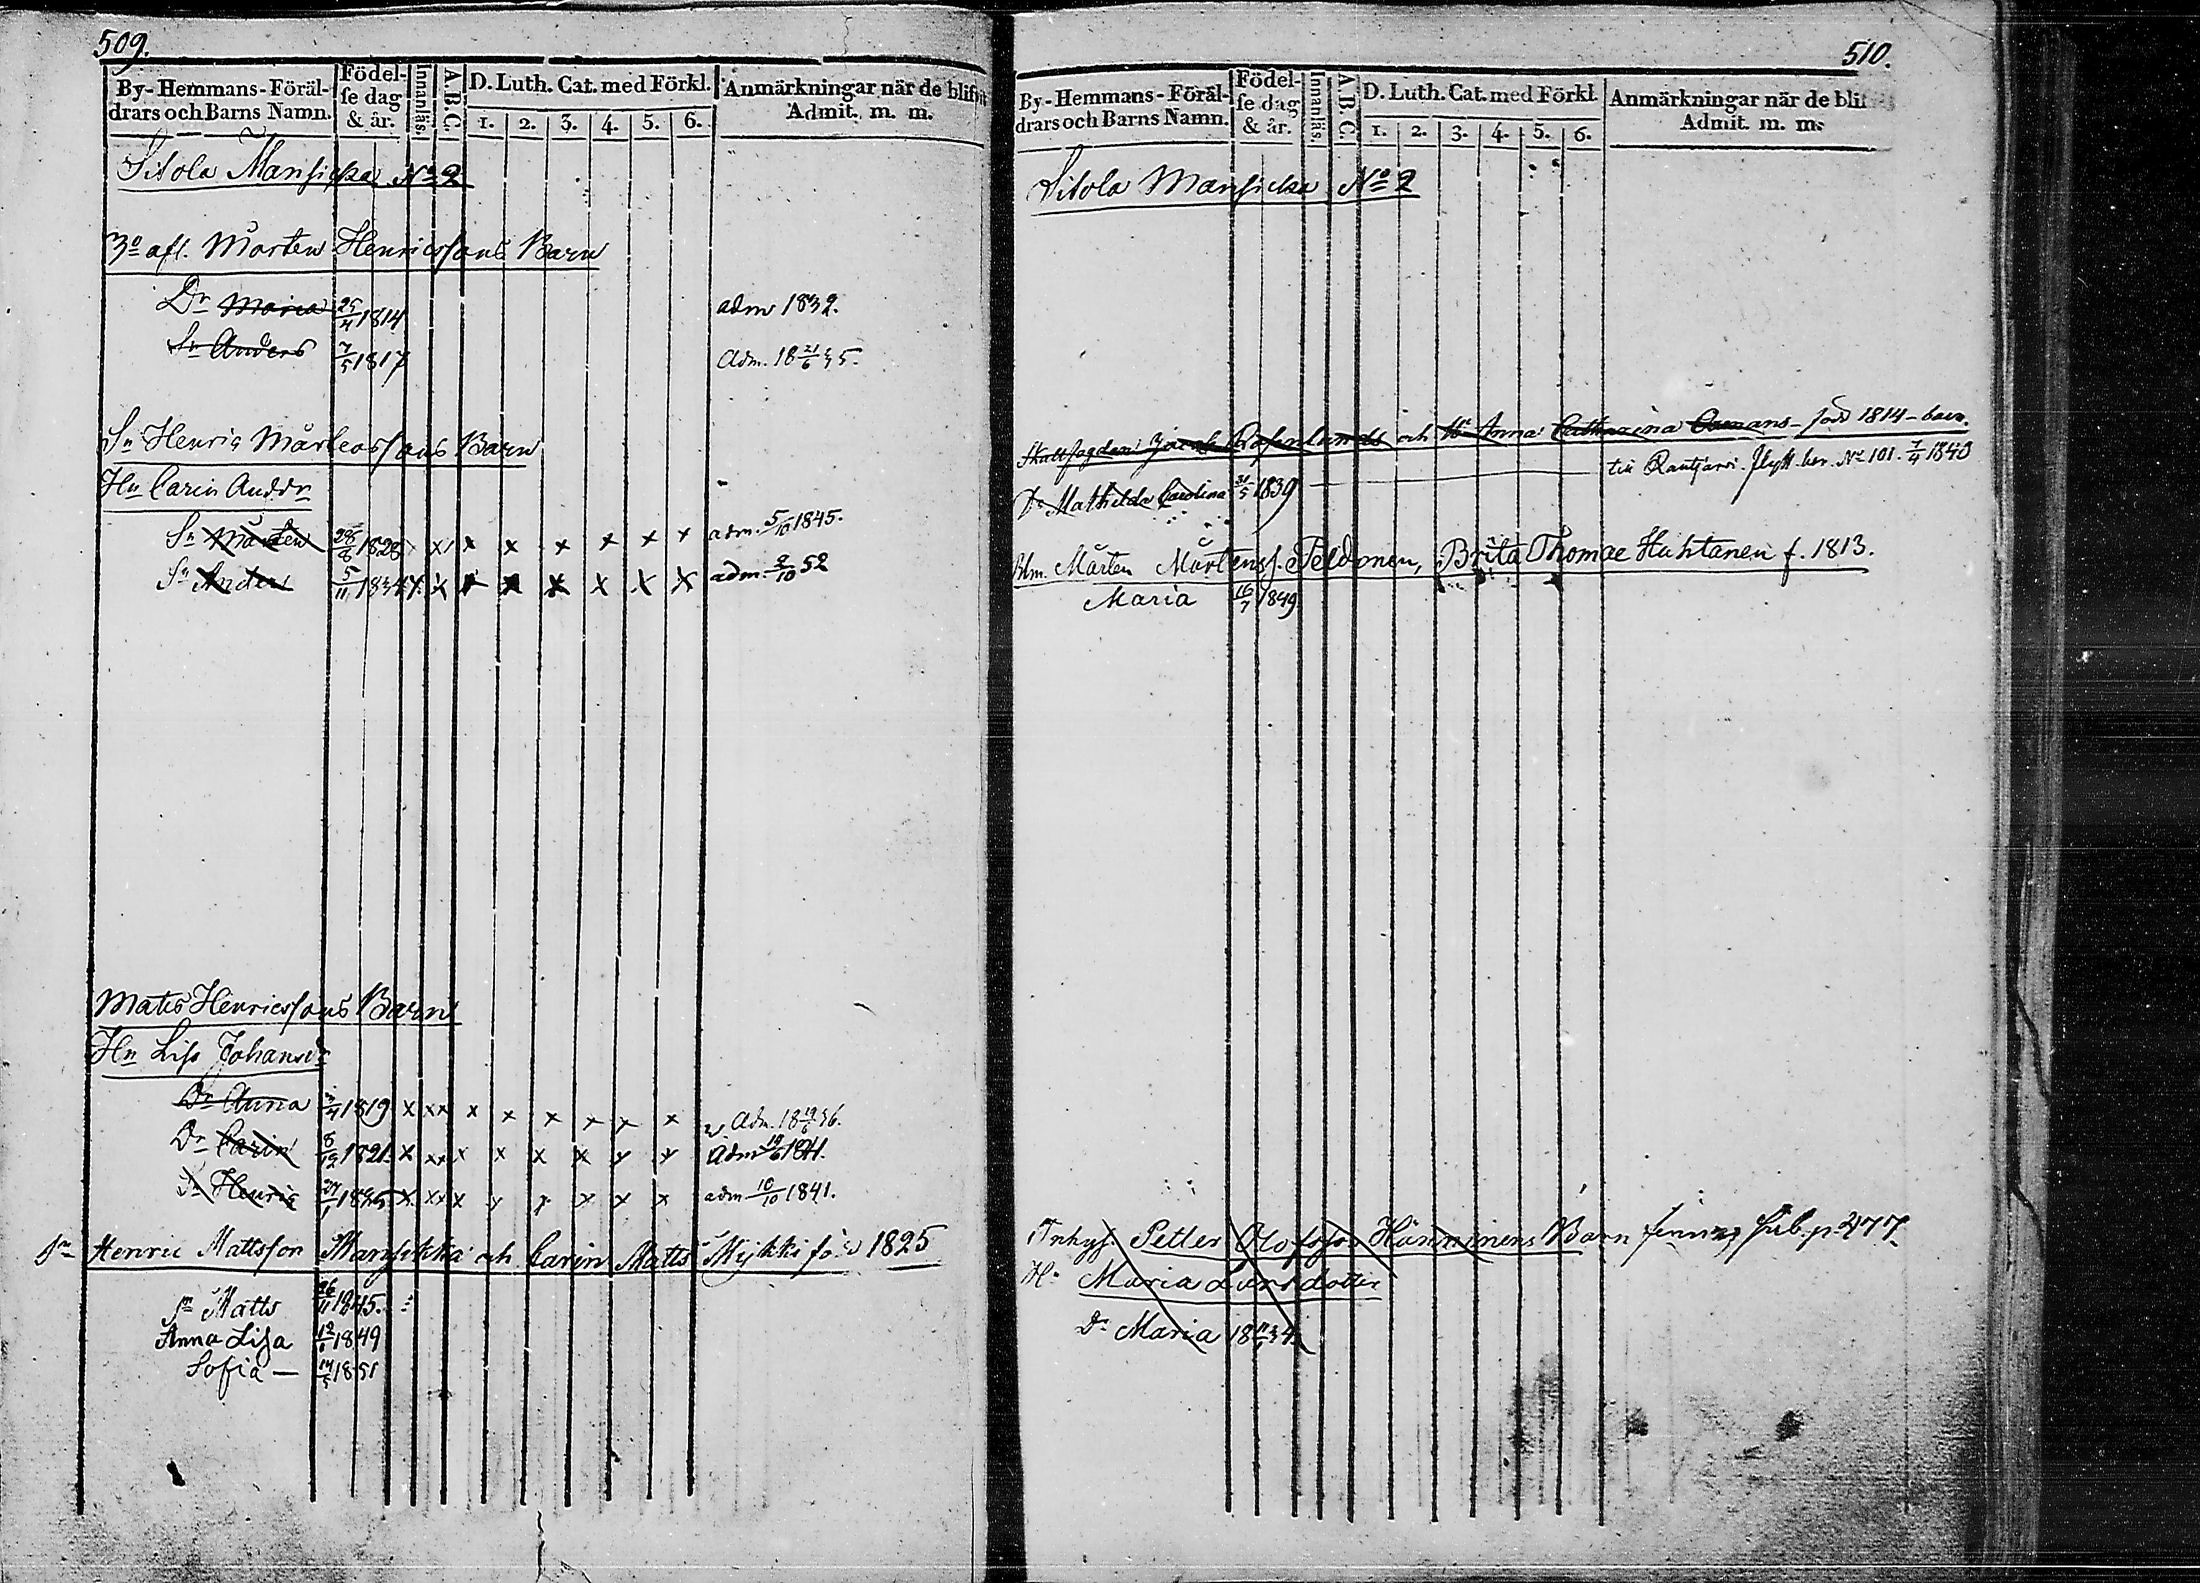 509.
By-Hemmans-Föräl-
drars och Barns Namn.
Födel-
se dag
& år.
Innanläs.
A.B.C.
D. Luth. Cat. med Förkl.
1. 2. 3. 4. 5. 6.
Anmärkningar när de blifvit
Admit. m. m.
Sitola Mansicka No 2
3o afl. Morten Henricssons Barn
Dr Maria 25/4 1814 adm 1832.
Sn Anders 7/5 1817 Adm. 18 21/6 35.
Sn Henric Mårtenssons Barn
Hu Carin Andrsdr
Sn Mårten 28/8 1828 x xx x x x x x x adm. 5/10 1845.
Sn Anders 5/11 1834 x. x x x x x x x adm. 2/10 52
Mats Henricssons Barn
Hu Lisa Johansdr
Dr Anna 3/4 1819 x xxx x x x x x x Adm. 18 19/6 36.
Dr Carin 8/12 1821. x xx x x x x x x Adm 10/10 1841.
Sn Henric 27/1 1825 x xx x x x x x x adm 10/10 1841.
Sn Henric Mattsson Mansikka och Carin Matts Mykki född 1825
Sn Matts 26/11 1845.
Anna Lisa 12/1 1849
Sofia — 14/5 1851
510.
By-Hemmans-Föräl-
drars och Barns Namn.
Födel-
se dag
& år.
Innanläs.
A.B.C.
D. Luth. Cat. med Förkl.
1. 2. 3. 4. 5. 6.
Anmärkningar när de blif
Admit. m. m.
Sitola Mansicka No 2
Skattfogden Rosenlunds och Anna Catharina född 1814 - barn.
Dr Mathilda Carolina 31/5 1839 — till Rautjärvi. flytt. ber. No 101. 7/4 1840
Mårten Mårtenss. Peldonen, Brita Thomae Huhtanen f. 1813.
Maria 16/7 1849
Inhys. Petter Olofsson Hänninens Barn finnas sub. p. 477
Hu Maria Larsdotter
Dr Maria 18 34